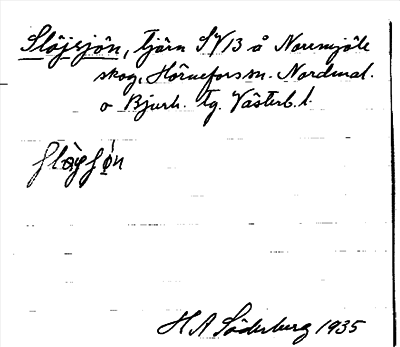 Slöjsjön, tjärn SV13 å Norrmjöle
skog, Hörnefors sn. Nordmal.
o Bjurh. tg. Västerb. l.
H A Söderberg 1935